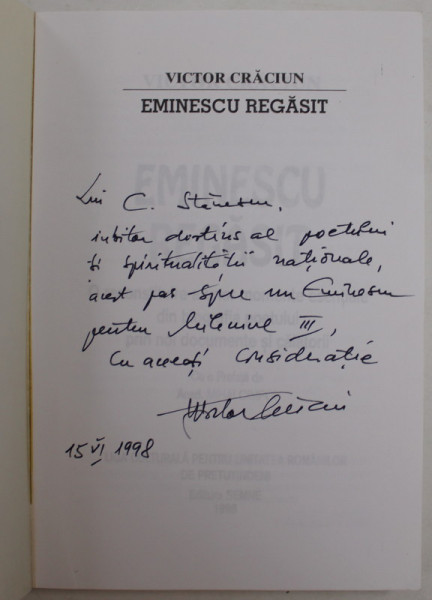 VICTOR CRĂCIUN
EMINESCU REGĂSIT
Lui C. Stănescu,
iubitor distins al poetului
și spiritualității naționale,
acest pas spre un Eminescu
pentru Mileniul III,
Cu aceeași considerație
Victor Crăciun
15 VI 1998